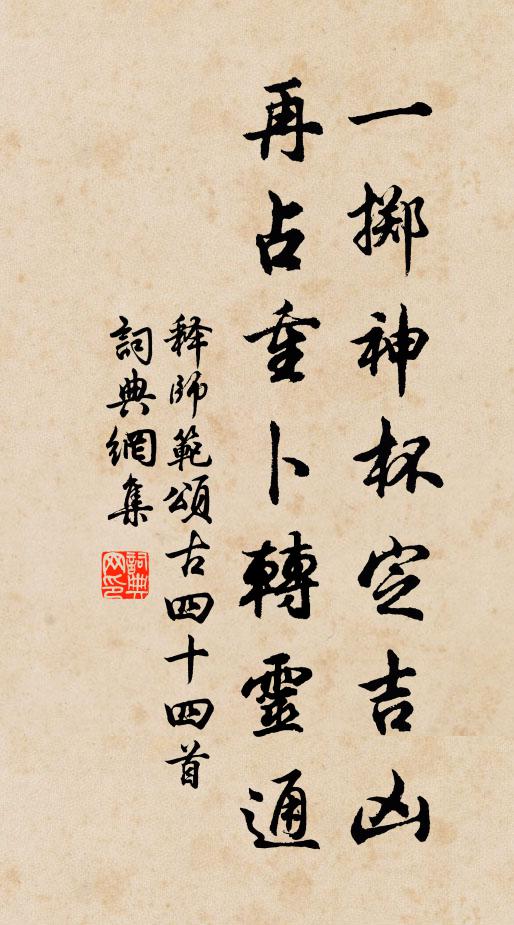 一掷神杯定吉凶
再占重卜轉靈通
释師範頌古四十四首
詞典網集
詞典网印